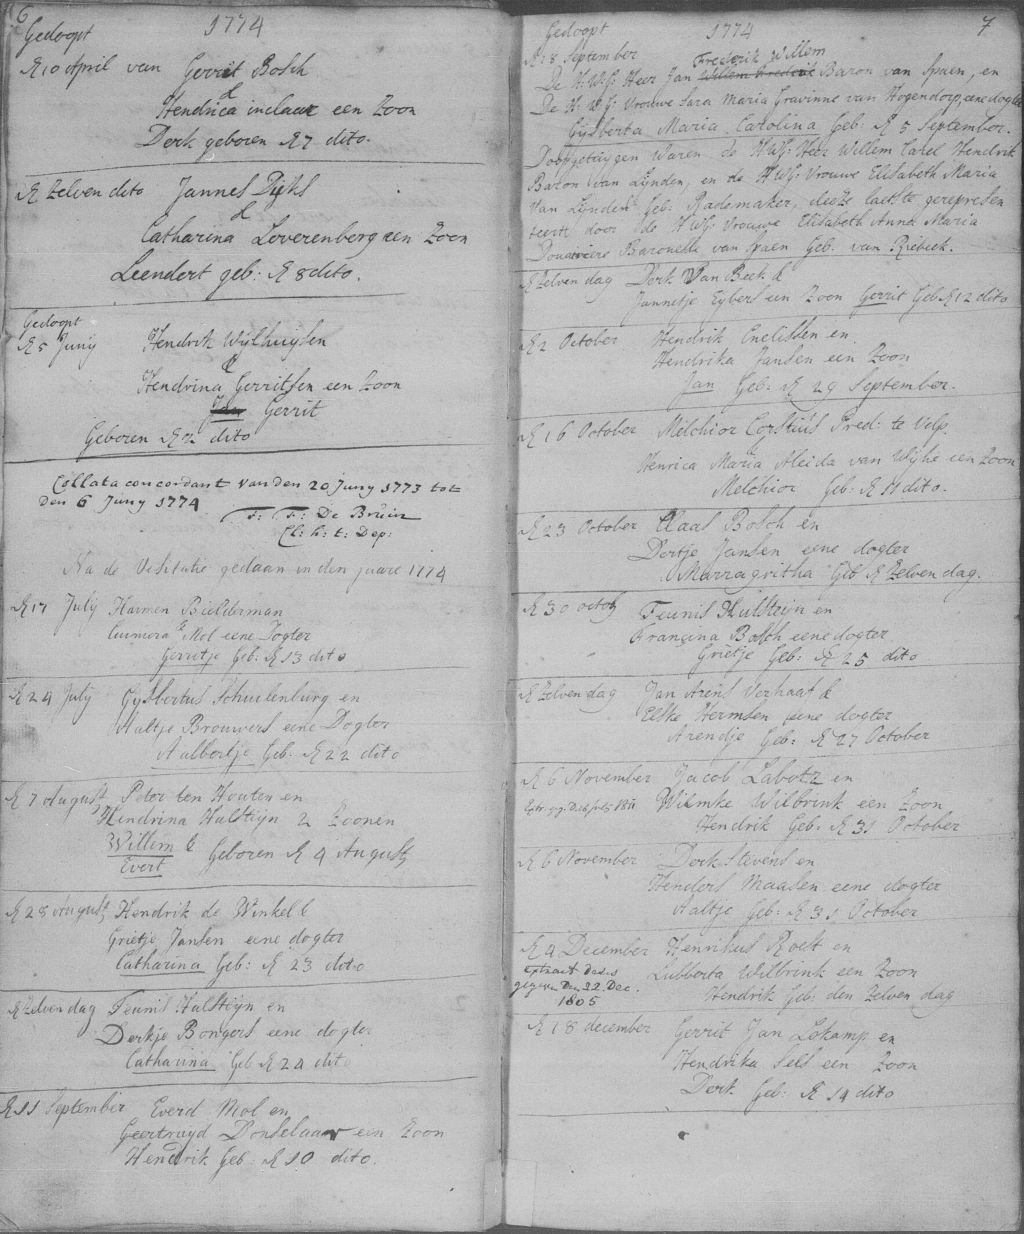 6
Gedoopt 1774
d 10 April van Gerrit Bosch
&
Hendrica inclaar een Zoon
Derk geboren d 7 dito.
d Zelven dito Jannes Dijks
&
Catharina Leverenberg een Zoon
Leendert geb: d 8 dito.
Gedoopt
d 5 Junij Hendrik Wijlhuijsen
&
Hendrina Gerritsen een Zoon
Jan Gerrit
Geboren d 2 dito
Collata concordant van den 20 Junij 1773 tot
den 6 Junij 1774
F: F: De Bruin
Cl: h: t: Dep:
Na de Visitatie gedaan in den jaare 1774
d 17 July Harmen Bielderman
& Mol eene Dogter
Gerritje Geb: d 13 dito
d 24 July Gijsbertus Schuilenburg en
Aaltje Brouwers eene Dogter
Aalbertje Geb: d 22 dito
d 7 August Peter ten Houten en
Hendrina Hulstijn 2 Zoonen
Willem &
Evert Geboren d 4 August
d 28 August Hendrik de Winkel &
Grietje Jansen eene dogter
Catharina Geb: d 23 dito
d Zelven dag Teunis Hulstijn en
Derkje Bongers eene dogter
Catharina Geb d 24 dito
d 11 September Everd Mol en
Geertruyd Donselaar een Zoon
Hendrik Geb: d 10 dito.
7
Gedoopt 1774
d 18 September Frederik Willem
De H:W:G: Heer Jan Willem Frederik Baron van Spaen, en
De H: W:G: Vrouwe Sara Maria Gravinne van Hogendorp, eene dogter
Gijsberta Maria Carolina Geb: d 5 September.
Doopgetuygen waren de HWG: Heer Willem Carel Hendrik
Baron van Lijnden, en de HWG: Vrouwe Elisabeth Maria
Van Lijnden Geb: Rademaker, deeze laatste gerepresen
teert door de HWG: Vrouwe Elisabeth Anna Maria
Douariere Baronesse van Spaen Geb: van Riebeek.
d Zelven dag Derk Van Beek &
Jannetje Eybers een Zoon Gerrit Geb. d 12 dito
d 2 October Hendrik Cnelissen en
Hendrika Jansen een Zoon
Jan Geb: d 29 September.
d 16 October Melchior Corstius Pred: te Velp.
&
Henrica Maria Aleida van Wijhe een Zoon
Melchior Geb: d 11 dito.
d 23 October Claas Bosch en
Dertje Jansen eene dogter
Marragritha Geb d Zelven dag.
d 30 octob Teunis Hulsteijn en
Francina Bosch eene dogter
Grietje Geb: d 25 dito
d Zelven dag Jan Arens Verhaaf &
Elske Hermsen eene dogter
Arendje Geb: d 27 October
d 6 November Jacob Labotz en
1811 Wilmke Wilbrink een Zoon
Hendrik Geb: d 31 October
d 6 November Derk Stevens en
Henders Maasen eene dogter
Aaltje Geb: d 31 October
d 4 December Henrikus Roest en
Extract deses Lubberta Wilbrink een Zoon
gegeven Den 22. Dec. Hendrik Geb: den Zelven dag
1805
d 18 december Gerrit Jan Lokamp en
Hendrika Sels een Zoon
Derk Geb: d 14 dito